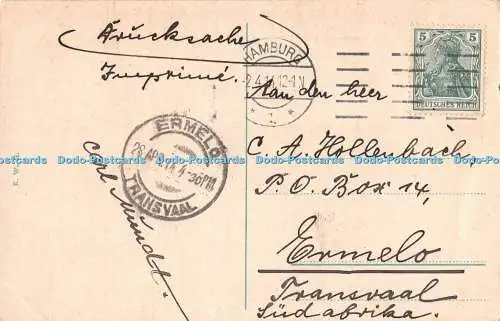 Drucksache
Imprimé.
HAMBURG
2.4.14.12-1 N
1
5 5
DEUTSCHES REICH
Aan den heer
C. A. Hollenbach,
P. O. Box 14,
Ermelo
Transvaal
Südafrika.
ERMELO
28 APR 14 4-30PM
TRANSVAAL
Carl Mundt.
Dodo-Postcards Dodo-Postcards Dodo-Postcards Dodo-Postcards Dodo-Postcards